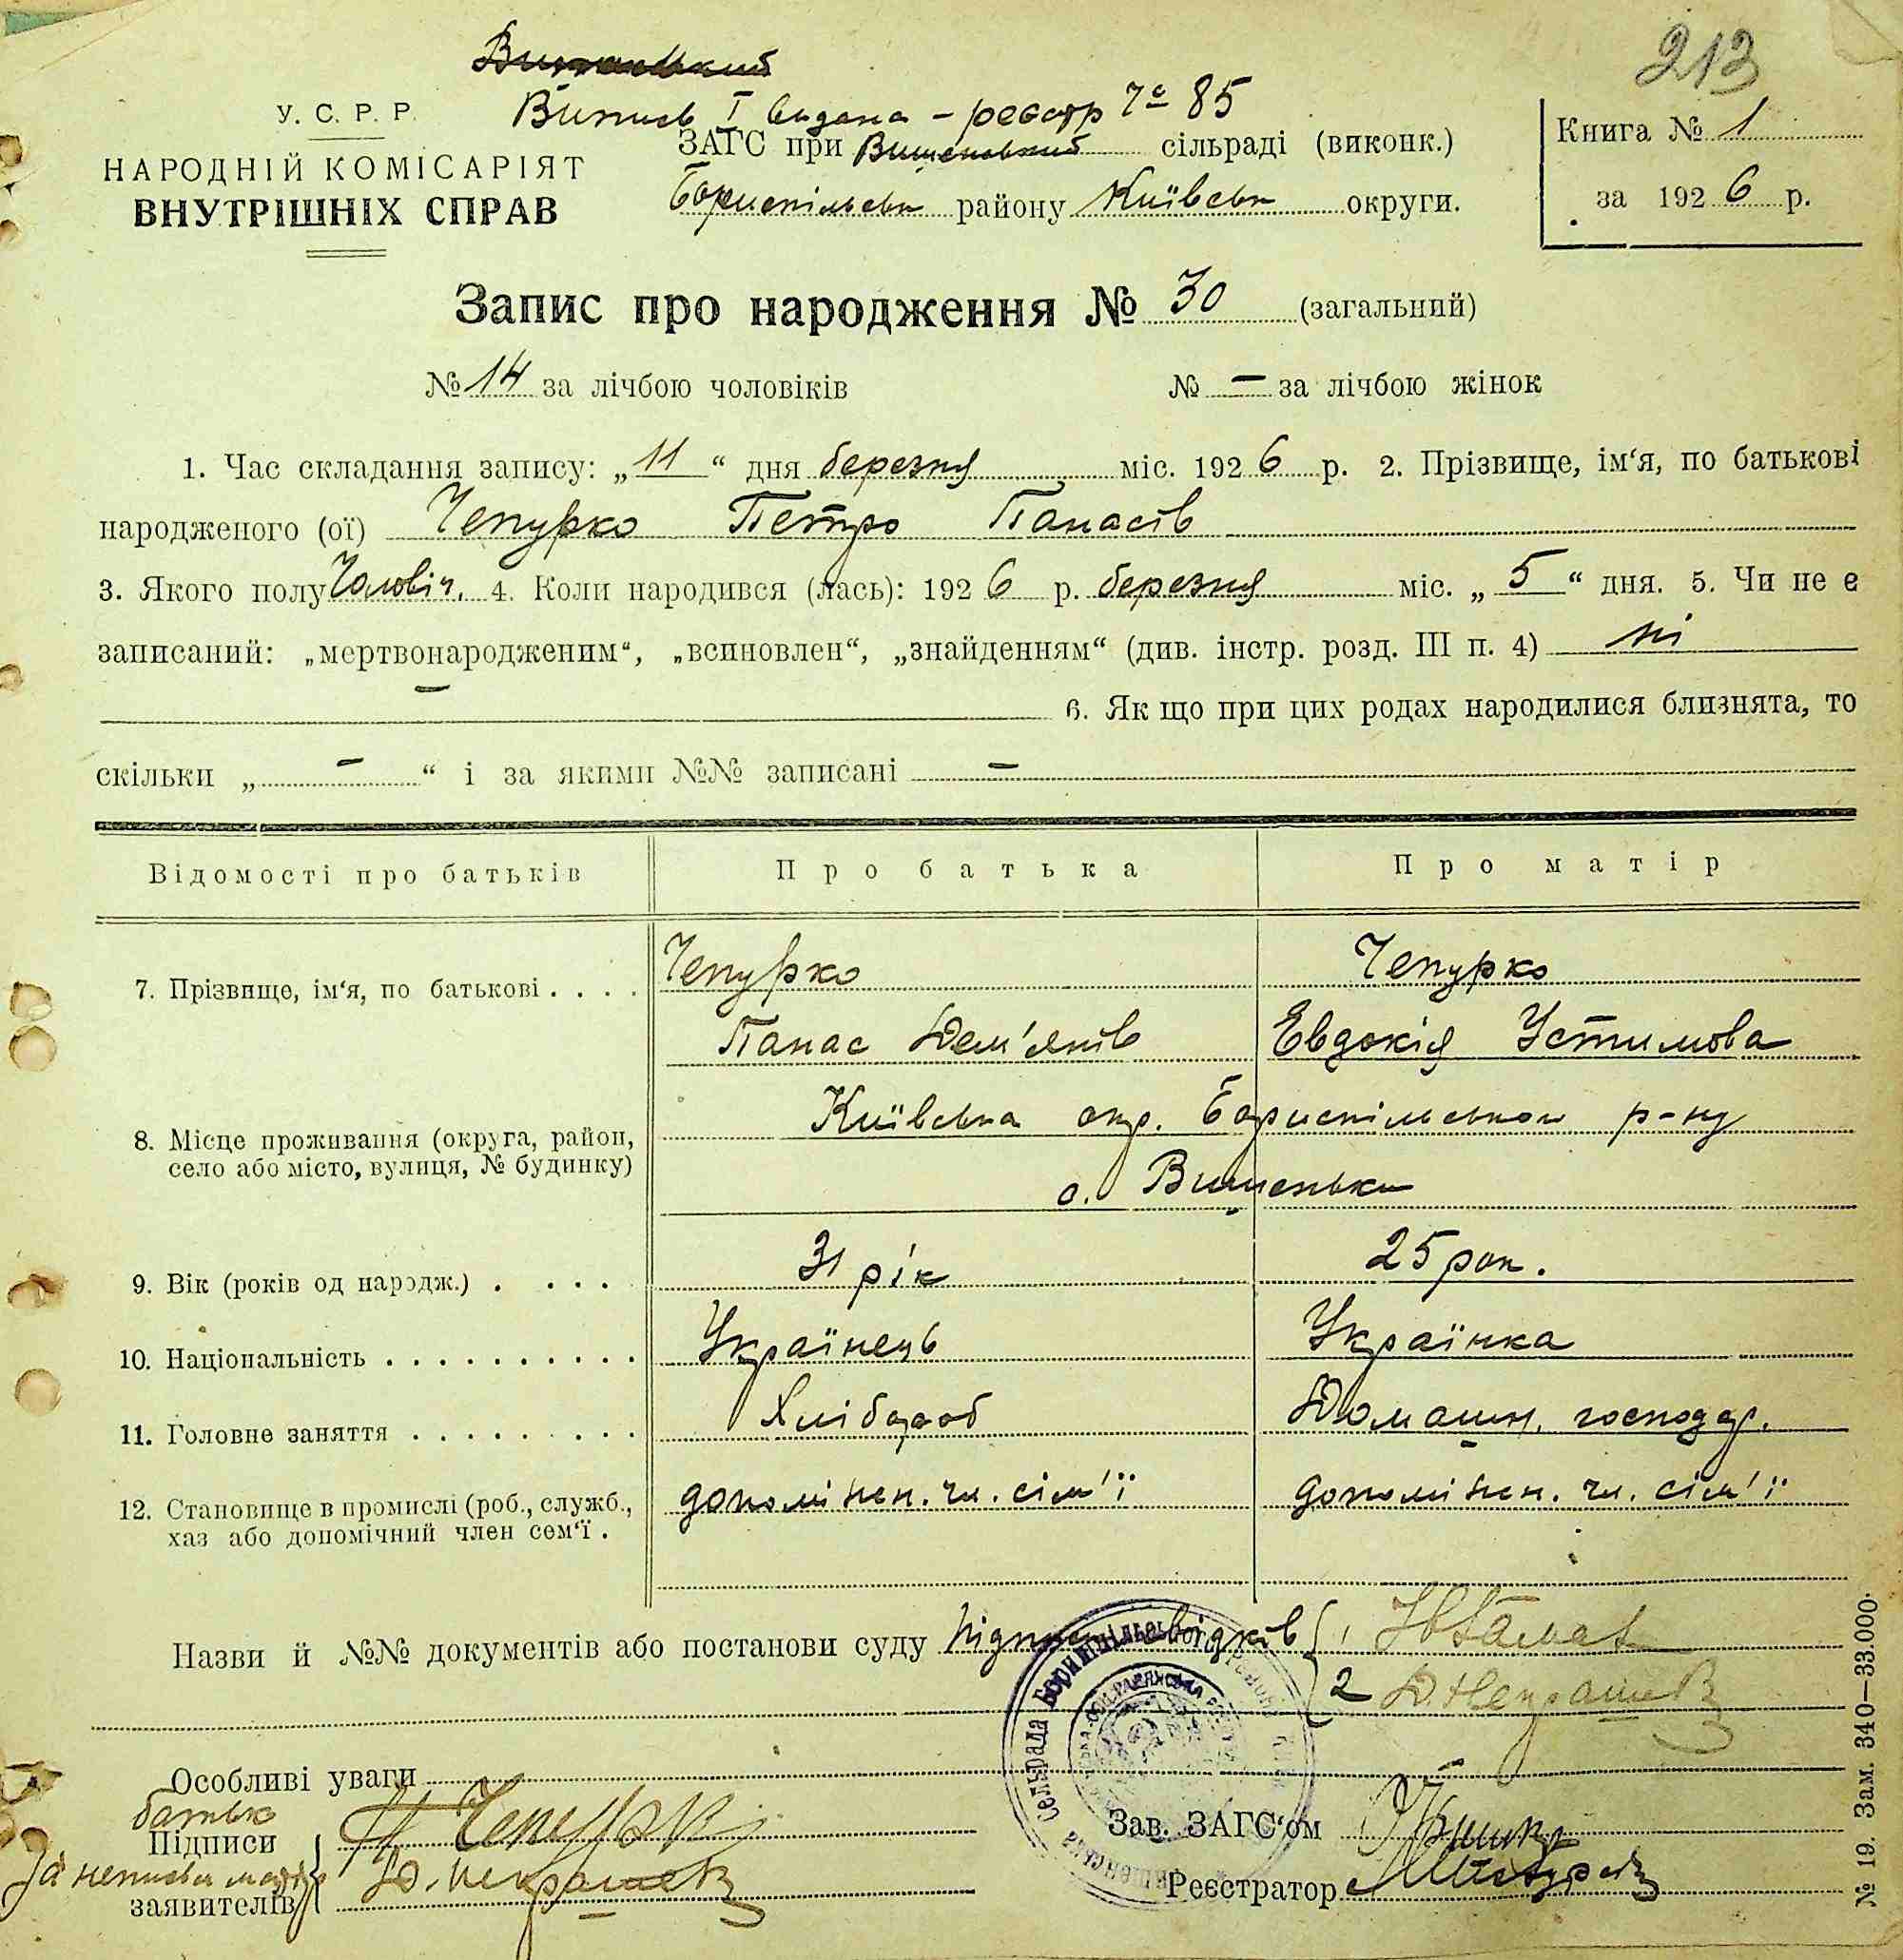 213
Випись І видана - реєстр № 85
У. С. Р. Р.
НАРОДНІЙ КОМІСАРІЯТ
ВНУТРІШНІХ СПРАВ
ЗАГС при Вишеньській сільраді (виконк.)
Бориспільськ району Київськ округи.
Книга № 1
за 1926 р.
Запис про народження № 30 (загальний)
№ 14 за лічбою чоловіків № — за лічбою жінок
1. Час складання запису: „11“ дня березня міс. 1926 р. 2. Прізвище, ім‘я, по батькові
народженого (ої) Чепурко Петро Панасів
3. Якого полу Чоловіч. 4. Коли народився (лась): 1926 р. березня міс. „5“ дня. 5. Чи не є
записаний: „мертвонародженим“, „всиновлен“, „знайденням“ (див. інстр. розд. III п. 4) ні
— 6. Як що при цих родах народилися близнята, то
скільки „ — “ і за якими №№ записані —
Відомості про батьків Про батька Про матір
7. Прізвище, ім‘я, по батькові . . . . Чепурко Чепурко
Панас Дем'янів Евдокія Устимова
8. Місце проживання (округа, район, село або місто, вулиця, № будинку) Київська окр. Бориспільськом р-ну
с. Вишеньки
9. Вік (років од народж.) . . . . 31 рік 25 рок.
10. Національність . . . . . . . . . . . Українець Українка
11. Головне заняття . . . . . . . . . Хлібороб Домашн. господар.
12. Становище в промислі (роб., служб., хаз або допомічний член сем‘ї . чл. сім'ї чл. сім'ї
Назви й №№ документів або постанови суду Підписи свідків { 1
2 Д. Некрашев
Особливі уваги —
батько
Підписи П Чепурко
За неписьм матір
заявителів Д. Некрашев
Зав. ЗАГС‘ом
Реєстратор
№ 19. Зам. 340—33.000.